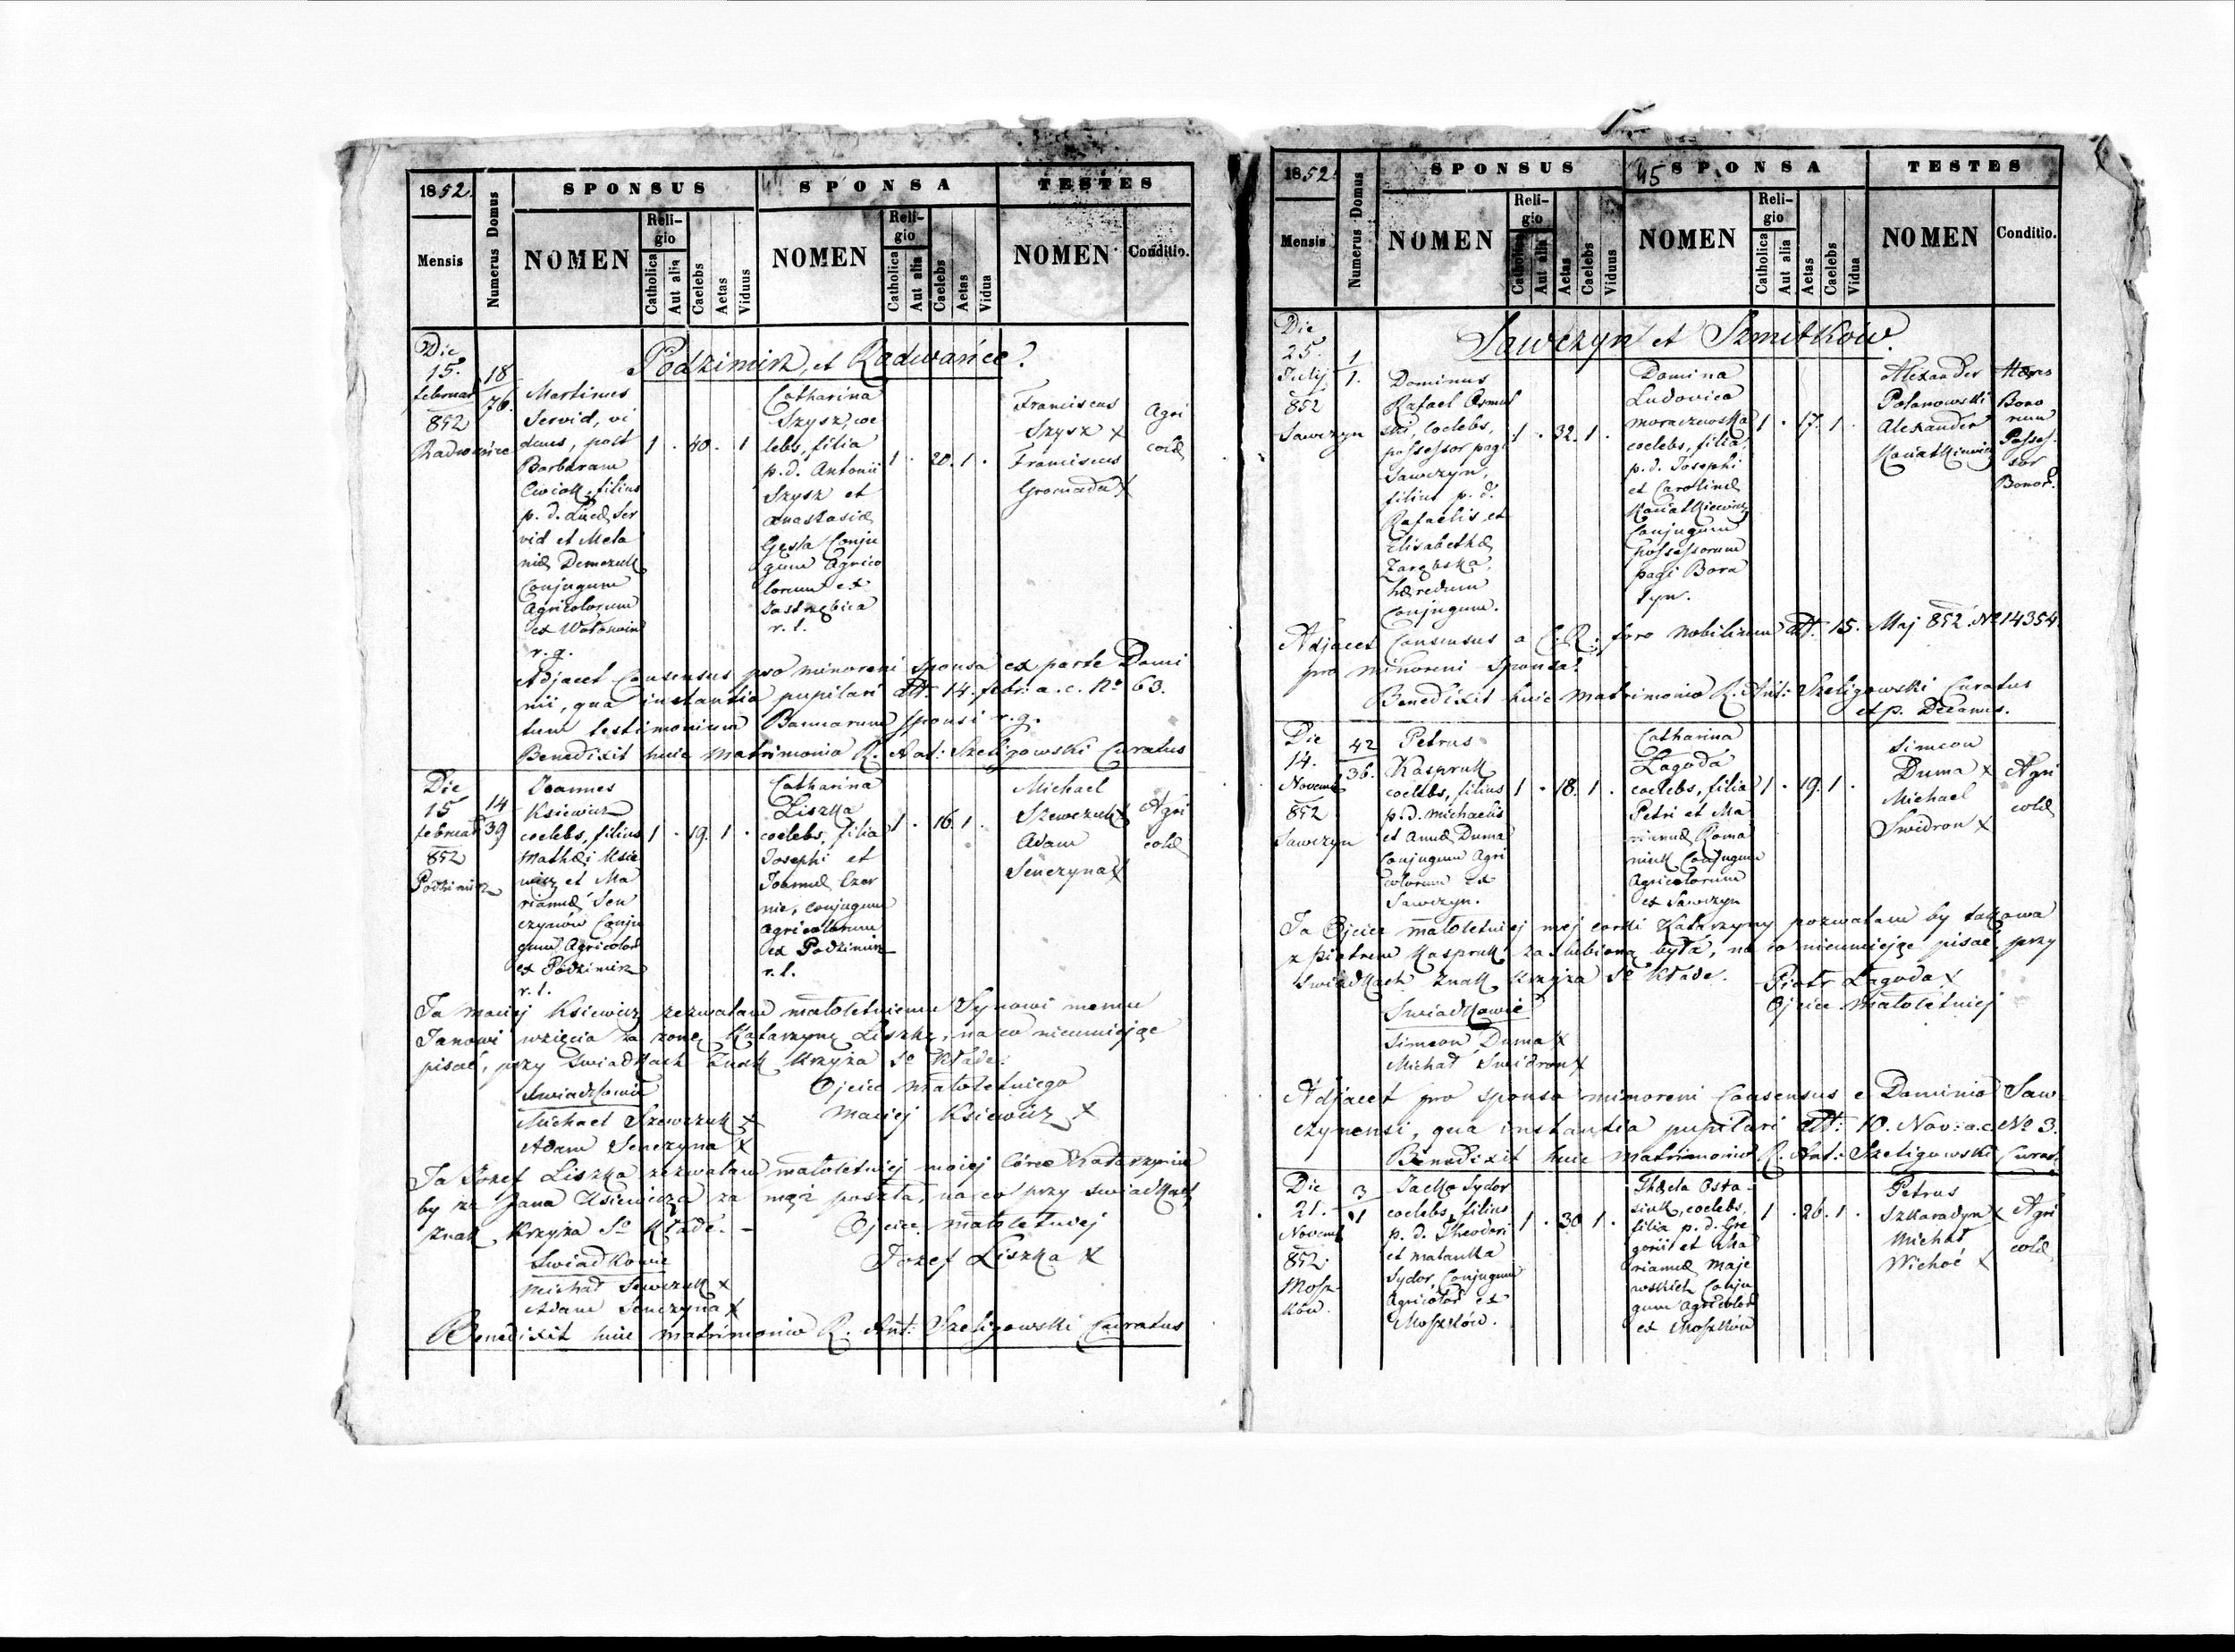 1852.
Mensis
Numerus Domus
SPONSUS
NOMEN
Religio
Catholica
Aut alia
Caelebs
Aetas
Viduus
SPONSA
NOMEN
Religio
Catholica
Aut alia
Caelebs
Aetas
Vidua
TESTES
NOMEN
Conditio.
Podzimirz, et Radwańce
Die
15.
februar
852
Radwańce
18
76.
Martinus
Servid, vi
duus, post
Barbaram
Cwiok, filius
p. d. Lucæ Ser
vid et Mela
niæ Demczuk
Conjugum
Agricolarum
ex Wolswin
r. g.
1 . 40. 1
Catharina
Szysz, coe
lebs, filia
p. d. Antonii
Szysz et
Anastasiæ
Gesla Conju
gum Agrico
larum ex
Jastrzębica
r. l.
1 . 20. 1 .
Franciscus
Szysz x
Franciscus
Gromada x
Agri
colæ
Adjacet Consensus pro minoreni sponsa ex parte Domi
nii, qua instantia pupilari dtt. 14. febr: a. c. No 63.
tum testimonium Bannorum sponsi r. g.
Benedixit huic Matrimonio R. Ant: Szeligowski Curatus
Die
15
februar
852
Podzimirz
14
39
Joannes
Ksiewicz
coelebs, filius
Mathæi Ksie
wicz et Ma
riannæ Sen
czynów Conju
gum Agricolar
ex Podzimirz
r. l.
1 . 19. 1 .
Catharina
Liszka
coelebs, filia
Josephi et
Joannæ Czer
nic, conjugum
Agricolarum
ex Podzimirz
r. l.
1 . 16. 1 .
Michael
Szewczuk x
Adam
Senczyna x
Agri
colæ
Ja Maciej Ksiewicz zezwalam małoletniemu Synowi memu
Janowi wzięcia za żonę Katarzynę Liszkę, na co nieumiejąc
pisać, przy świadkach Znak Krzyża So Kładę.
Swiadkowie
Ojciec małoletniego
Michael Szewczuk x
Maciej Ksiewicz x
Adam Senczyna x
Ja Jozef Liszka zezwalam małoletniej mojej Córce Katarzynie
by za Jana Ksiewicza za mąż poszła, na co przy swiadkach
znak Krzyża So Kładę. –
Ojciec małoletniej
Swiadkowie
Jozef Liszka x
Michał Szewczuk x
Adam Senczyna x
Benedixit huic matrimonio R. Ant: Szeligowski Curatus
1852.
45
Mensis
Numerus Domus
SPONSUS
NOMEN
Religio
Catholica
Aut alia
Aetas
Caelebs
Viduus
SPONSA
NOMEN
Religio
Catholica
Aut alia
Aetas
Caelebs
Vidua
TESTES
NOMEN
Conditio.
Sawczyn et Szmitków.
Die
25.
Julij
852
Sawczyn
1
1.
Dominus
Rafael Osmul
ski, Coelebs,
possessor pagi
Sawczyn,
filius p. d.
Rafaelis et
Elisabethæ
Zarębska,
hæredum
Conjugum.
1 . 32. 1 .
Domina
Ludovica
Moraczewska
coelebs, filia
p. d. Josephi
et Carolinæ
Kwiatkiewicz
Conjugum
Possessorum
pagi Bora
tyn.
1 . 17. 1 .
Alexander
Polanowski
Alexander
Kwiatkiewicz
Hæres
Bono
rum
Posses-
sor
Bonor.
Adjacet Consensus a C. R. foro Nobilium dtt. 15. Maj 852. No 14354.
pro minoreni Sponsa.
Benedixit huic matrimonio R. Ant: Szeligowski Curatus
et p. Decanus.
Die
14.
Novemb
852
Sawczyn
42
36.
Petrus
Kaspruk
coelebs, filius
p. d. Michaelis
et Annæ Duma
Conjugum Agri
colarum ex
Sawczyn.
1 . 18. 1 .
Catharina
Łagoda
coelebs, filia
Petri et Ma
riannæ Roma
niuk Conjugum
Agricolarum
ex Sawczyn
1 . 19. 1 .
Simeon
Duma x
Michael
Swidron x
Agri
colæ
Ja Ojciec małoletniej mej corki Katarzyny pozwalam by takowa
z Piotrem Kaspruk zaślubioną była, na co nieumiejąc pisać, przy
swiadkach znak krzyża So Kładę.
Piotr Łagoda x
Swiadkowie
Ojciec małoletniej
Simeon Duma x
Michał Swidron x
Adjacet pro sponso minoreni Consensus e Dominio Saw
czynensi, qua instantia pupilari dtt: 10. Nov: a. c. No 3.
Benedixit huic matrimonio R. Ant: Szeligowski Curat
Die
21.
Novemb
852.
Mosz
ków.
3
1
Jacko Sydor
coelebs, filius
p. d. Theodori
et Malanka
Sydor, Conjugum
Agricolar ex
Moszków.
1 . 30 1 .
Thecla Osta
siuk, coelebs,
filia p. d. Gre
gorii et Ma
riannæ Maje
wskich Conju
gum Agricolar
ex Moszków
1 . 26. 1 .
Petrus
Szkaradyn x
Michał
Wichoć x
Agri
colæ